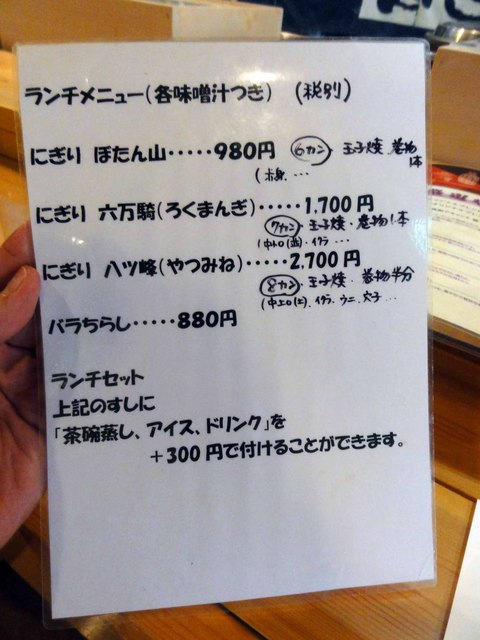 ランチメニュー(各味噌汁つき) (税別)
にぎり ぼたん山・・・・・980円 6カン 玉子焼 巻物1本
(赤身、…
にぎり 六万騎(ろくまんぎ)・・・・・1,700円
7カン・玉子焼・巻物1本
(中トロ(並)・イクラ …
にぎり 八ツ峰(やつみね)・・・・・2,700円
8カン・玉子焼・巻物半分
(中トロ(上)、イクラ、ウニ、穴子…
バラちらし・・・・・880円
ランチセット
上記のすしに
「茶碗蒸し、アイス、ドリンク」を
+300円で付けることができます。